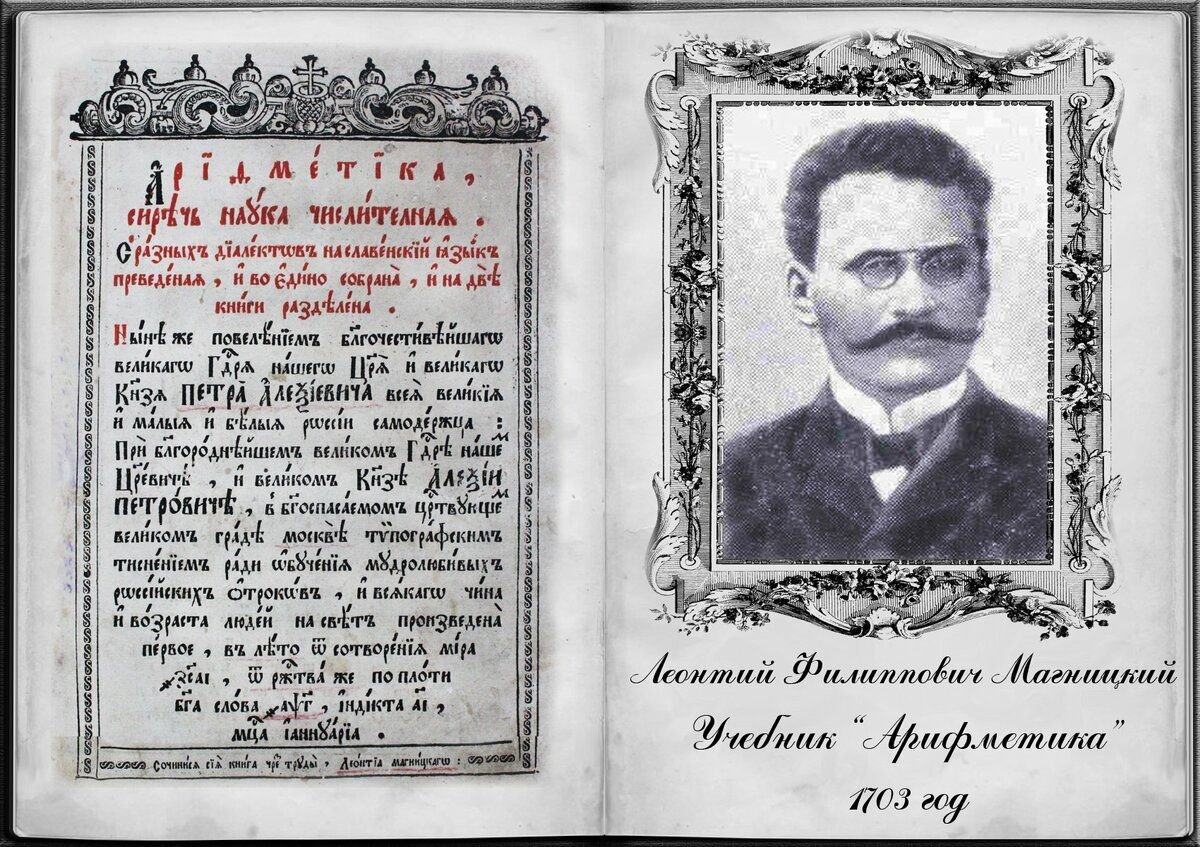 Арїѳме́тїка,
сирѣ́чь нау́ка числи́телная.
С̾ ра́зныхъ дїале́ктѡвъ на славе́нскїй ꙗ҆зы́къ
преведе́наѧ, и҆ во є҆ди́но собрана̀, и҆ на двѣ̀
кни́ги раздѣле́на.
Ны́нѣ же повелѣ́нїемъ бл҃гочести́вѣйшагѡ
вели́кагѡ Гдⷭ҇рѧ на́шегѡ Цр҃ѧ̀ и҆ вели́кагѡ
Кн҃зѧ ПЕТРА̀ А҆ЛЕѮІ́ЕВИЧА всеѧ̀ вели́кїѧ
и҆ ма́лыѧ и҆ бѣ́лыѧ рѡссі́и самоде́ржца :
Прѝ бл҃горо́днѣйшемъ вели́комъ Гдⷭ҇рѣ̀ на́шеⷨ
Цр҃е́вичѣ, и҆ вели́комъ Кн҃зѣ А҆ЛЕѮІ́И
ПЕТРО́ВИЧѢ, в̾ бг҃оспаса́емомъ црⷭ҇твꙋ́ющеⷨ
вели́комъ гра́дѣ москвѣ̀ тѷпогра́фскимъ
тисне́нїемъ ра́ди ѡ҆бꙋче́нїѧ мꙋдролюби́выхъ
рѡссі́йскихъ ѻ҆́трокѡвъ, и҆ всѧ́кагѡ чи́на
и҆ во́зраста люде́й на свѣ́тъ произведена̀
пе́рвое, въ лѣ́то ѿ сотворе́нїѧ мі́ра
҂зса҃і, ѿ ржⷭ҇тва́ же по пло́ти
бг҃а сло́ва ҂аѱг҃, і҆ндї́кта а҃і,
мцⷭ҇а і҆аннꙋа́рїа.
Сочини́сѧ сїѧ̀ кни́га чреⷥ трꙋды̀, Леѻ́нтїа магни́цкагѡ :
Леонтий Филиппович Магницкий
Учебник “Арифметика”
1703 год